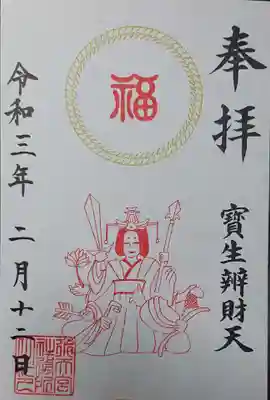 奉拝
寶生辨財天
福
令和三年二月十二日